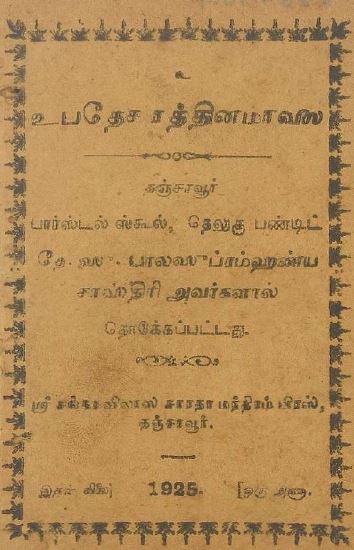 உ
உபதேச ரத்தினமாலை
தஞ்சாவூர்
பார்ஸ்டல் ஸ்கூல், தெலுகு பண்டிட்
தே. ஸு. பாலஸுப்ரம்ஹண்ய
சாஸ்திரி அவர்களால்
தொகுக்கப்பட்டது.
ஸ்ரீ சங்கரவிலாஸ சாரதா மந்திரம் பிரஸ்,
தஞ்சாவூர்.
இதன் விலை] 1925. [ஒரு அணா.